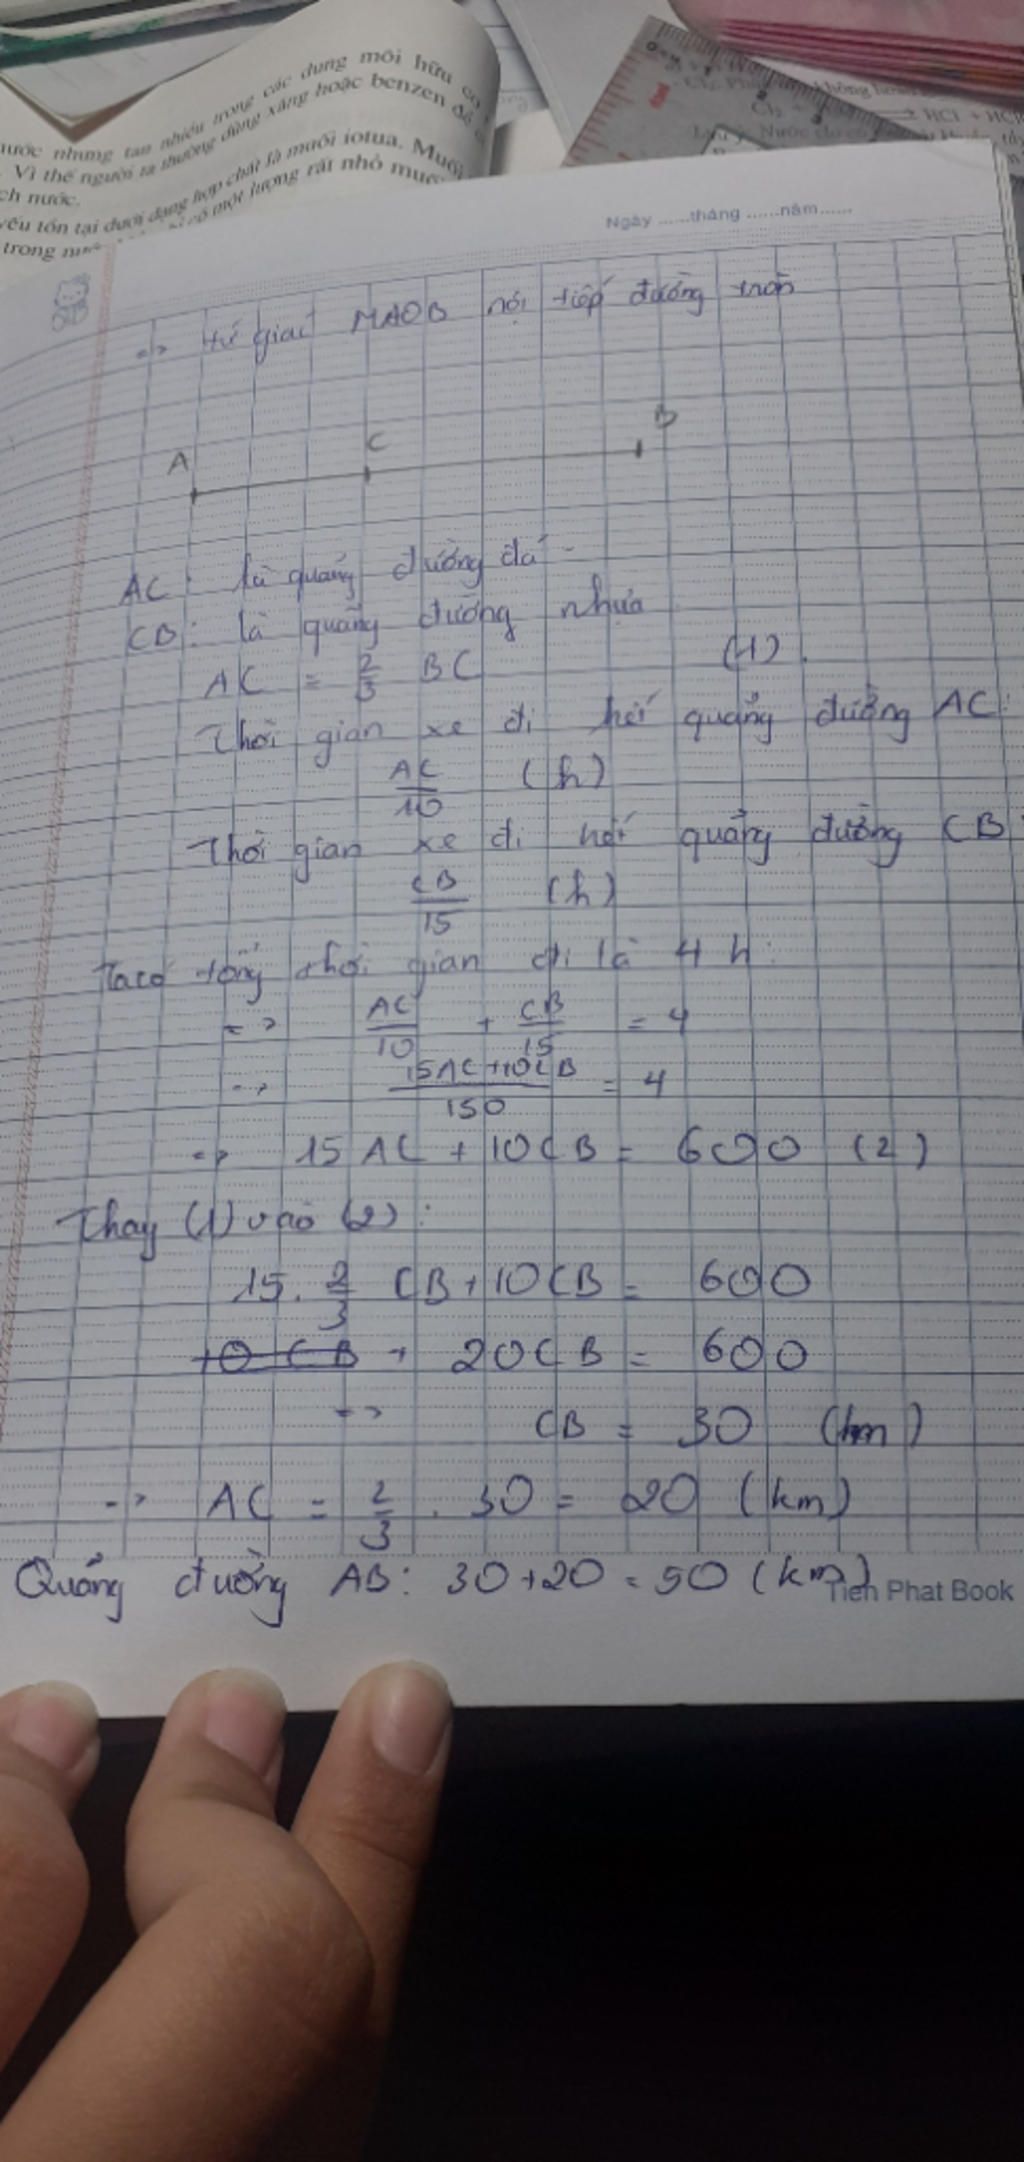 các dung môi hữu cơ
nước nhưng tan nhiều trong
Vì thế người ta thường dùng xăng hoặc benzen để
ch nước.
yếu tồn tại dưới dạng hợp chất là muối iotua. Muối
trong một lượng rất nhỏ
Ngày ......tháng ......năm......
=> tứ giác MAOB nội tiếp đường tròn
A C B
AC : là quảng đường đá
CB : là quãng đường nhựa
AC = 2/3 BC (1)
Thời gian xe đi hết quảng đường AC:
AC/10 (h)
Thời gian xe đi hết quảng đường CB:
CB/15 (h)
Ta có tổng thời gian đi là 4 h:
=> AC/10 + CB/15 = 4
=> 15AC+10CB/150 = 4
=> 15 AC + 10CB = 600 (2)
Thay (1) vào (2) :
15. 2/3 CB + 10CB = 600
10 CB + 20CB = 600
=> CB = 30 (km)
=> AC = 2/3 . 30 = 20 (km)
Quảng đường AB: 30+20 = 50 (km)
Tien Phat Book